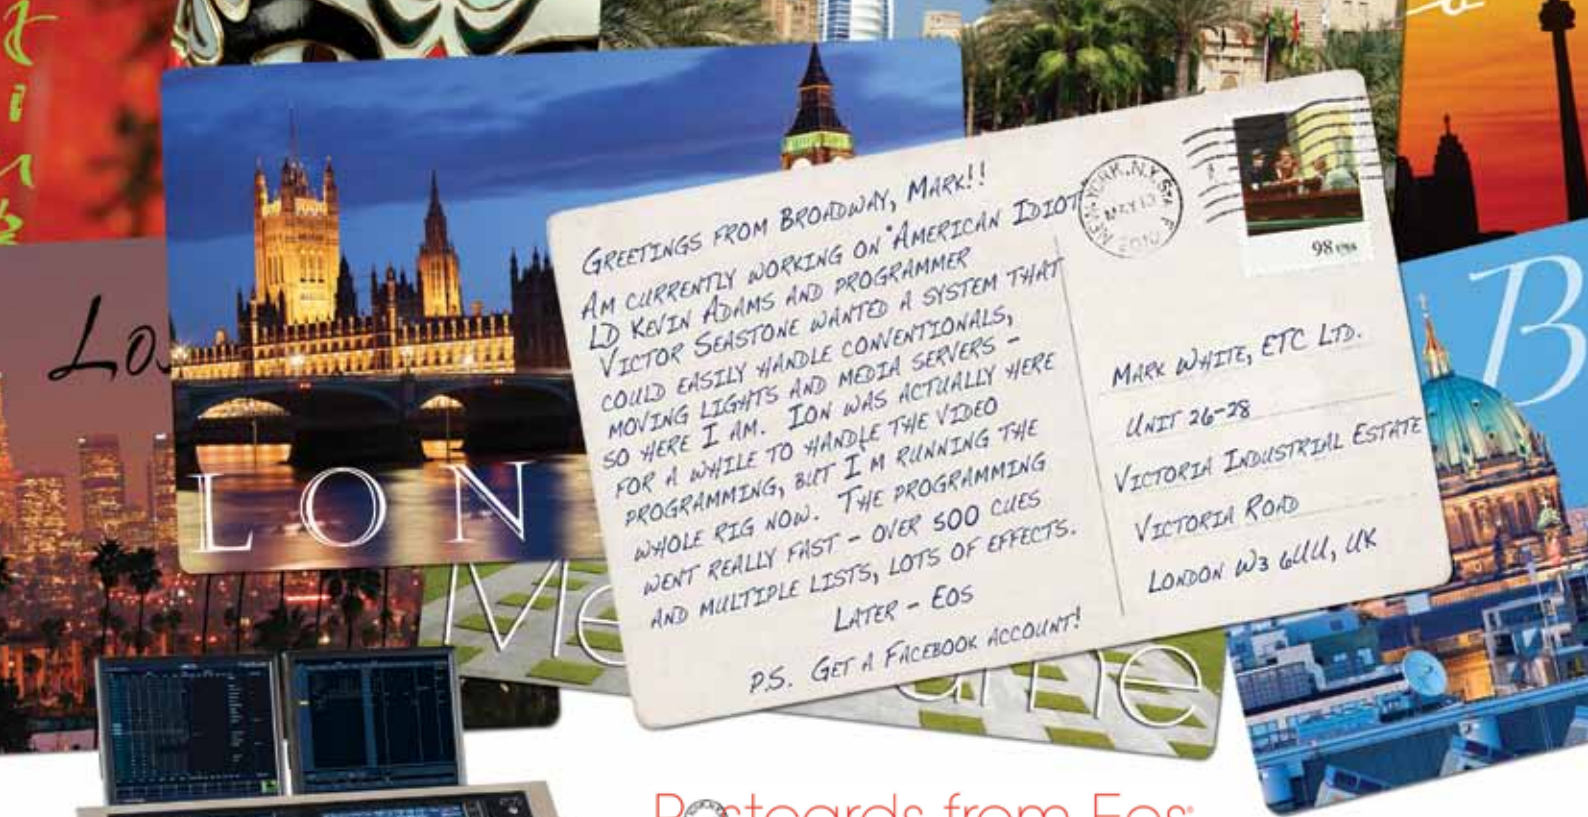 LON
Lo
Me
ame
B
GREETINGS FROM BROADWAY, MARK!!
AM CURRENTLY WORKING ON "AMERICAN IDIOT
LD KEVIN ADAMS AND PROGRAMMER
VICTOR SEASTONE WANTED A SYSTEM THAT
COULD EASILY HANDLE CONVENTIONALS,
MOVING LIGHTS AND MEDIA SERVERS -
SO HERE I AM. ION WAS ACTUALLY HERE
FOR A WHILE TO HANDLE THE VIDEO
PROGRAMMING, BUT I'M RUNNING THE
WHOLE RIG NOW. THE PROGRAMMING
WENT REALLY FAST - OVER 500 CUES
AND MULTIPLE LISTS, LOTS OF EFFECTS.
LATER - EOS
P.S. GET A FACEBOOK ACCOUNT!
NEW YORK, N.Y. STA F
MAY 13
2010
98 USA
MARK WHITE, ETC LTD.
UNIT 26-28
VICTORIA INDUSTRIAL ESTATE
VICTORIA ROAD
LONDON W3 6UU, UK
Postcards from Eos®